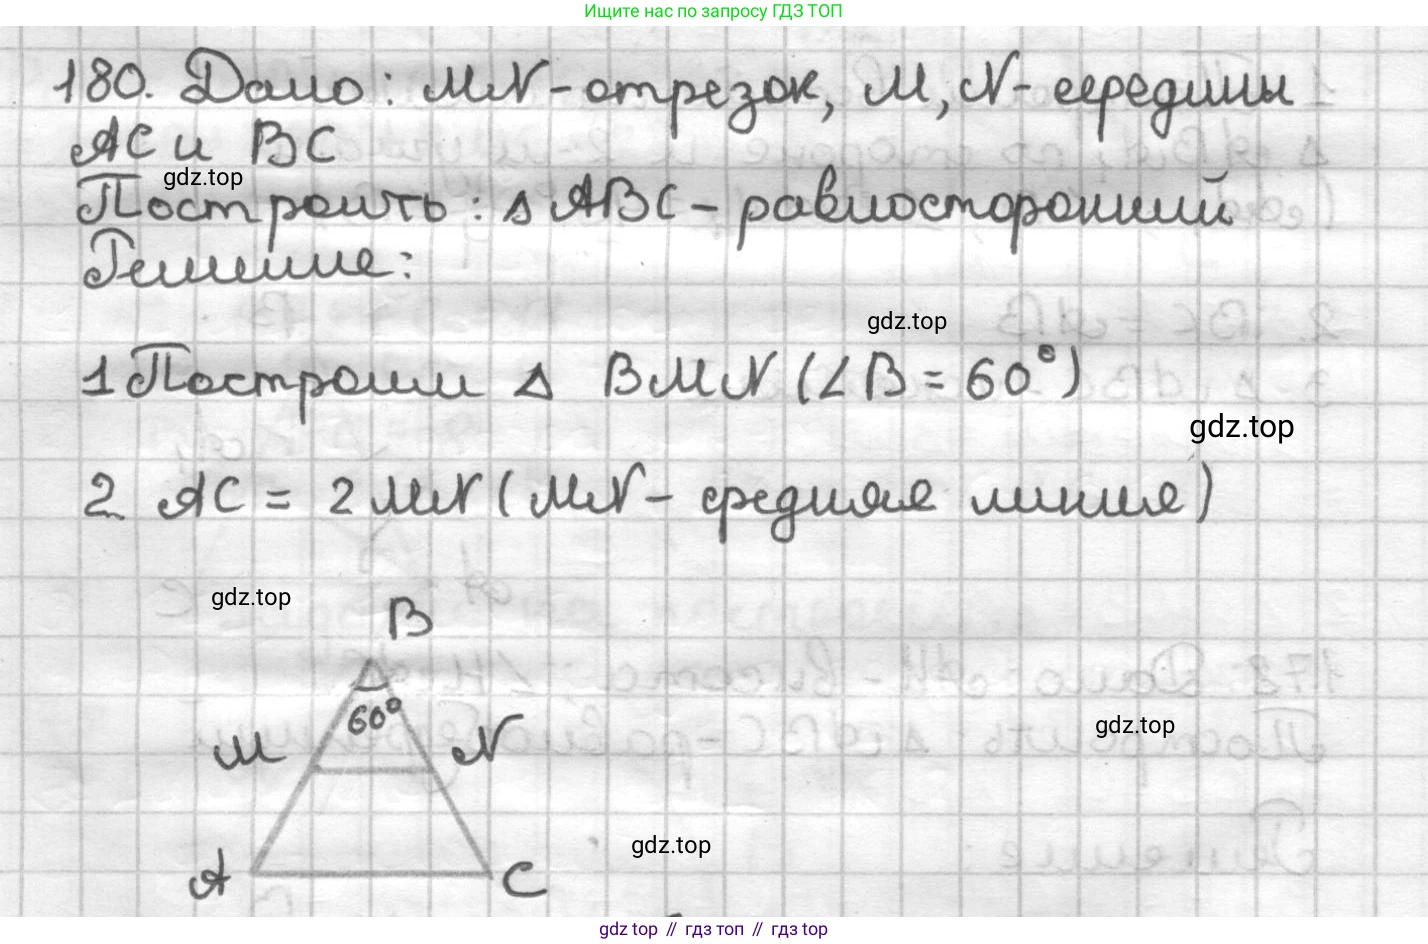 Ищите нас по запросу ГДЗ ТОП
180. Дано: MN - отрезок, M, N - середины
AC и BC
gdz.top
Построить: △ ABC - равносторонний
Решение:
gdz.top
1 Построим △ BMN (∠B = 60°)
gdz.top
2 AC = 2MN (MN - средняя линия)
gdz.top
B
60°
M N
gdz.top
gdz.top
A C
gdz top // гдз топ // гдз top